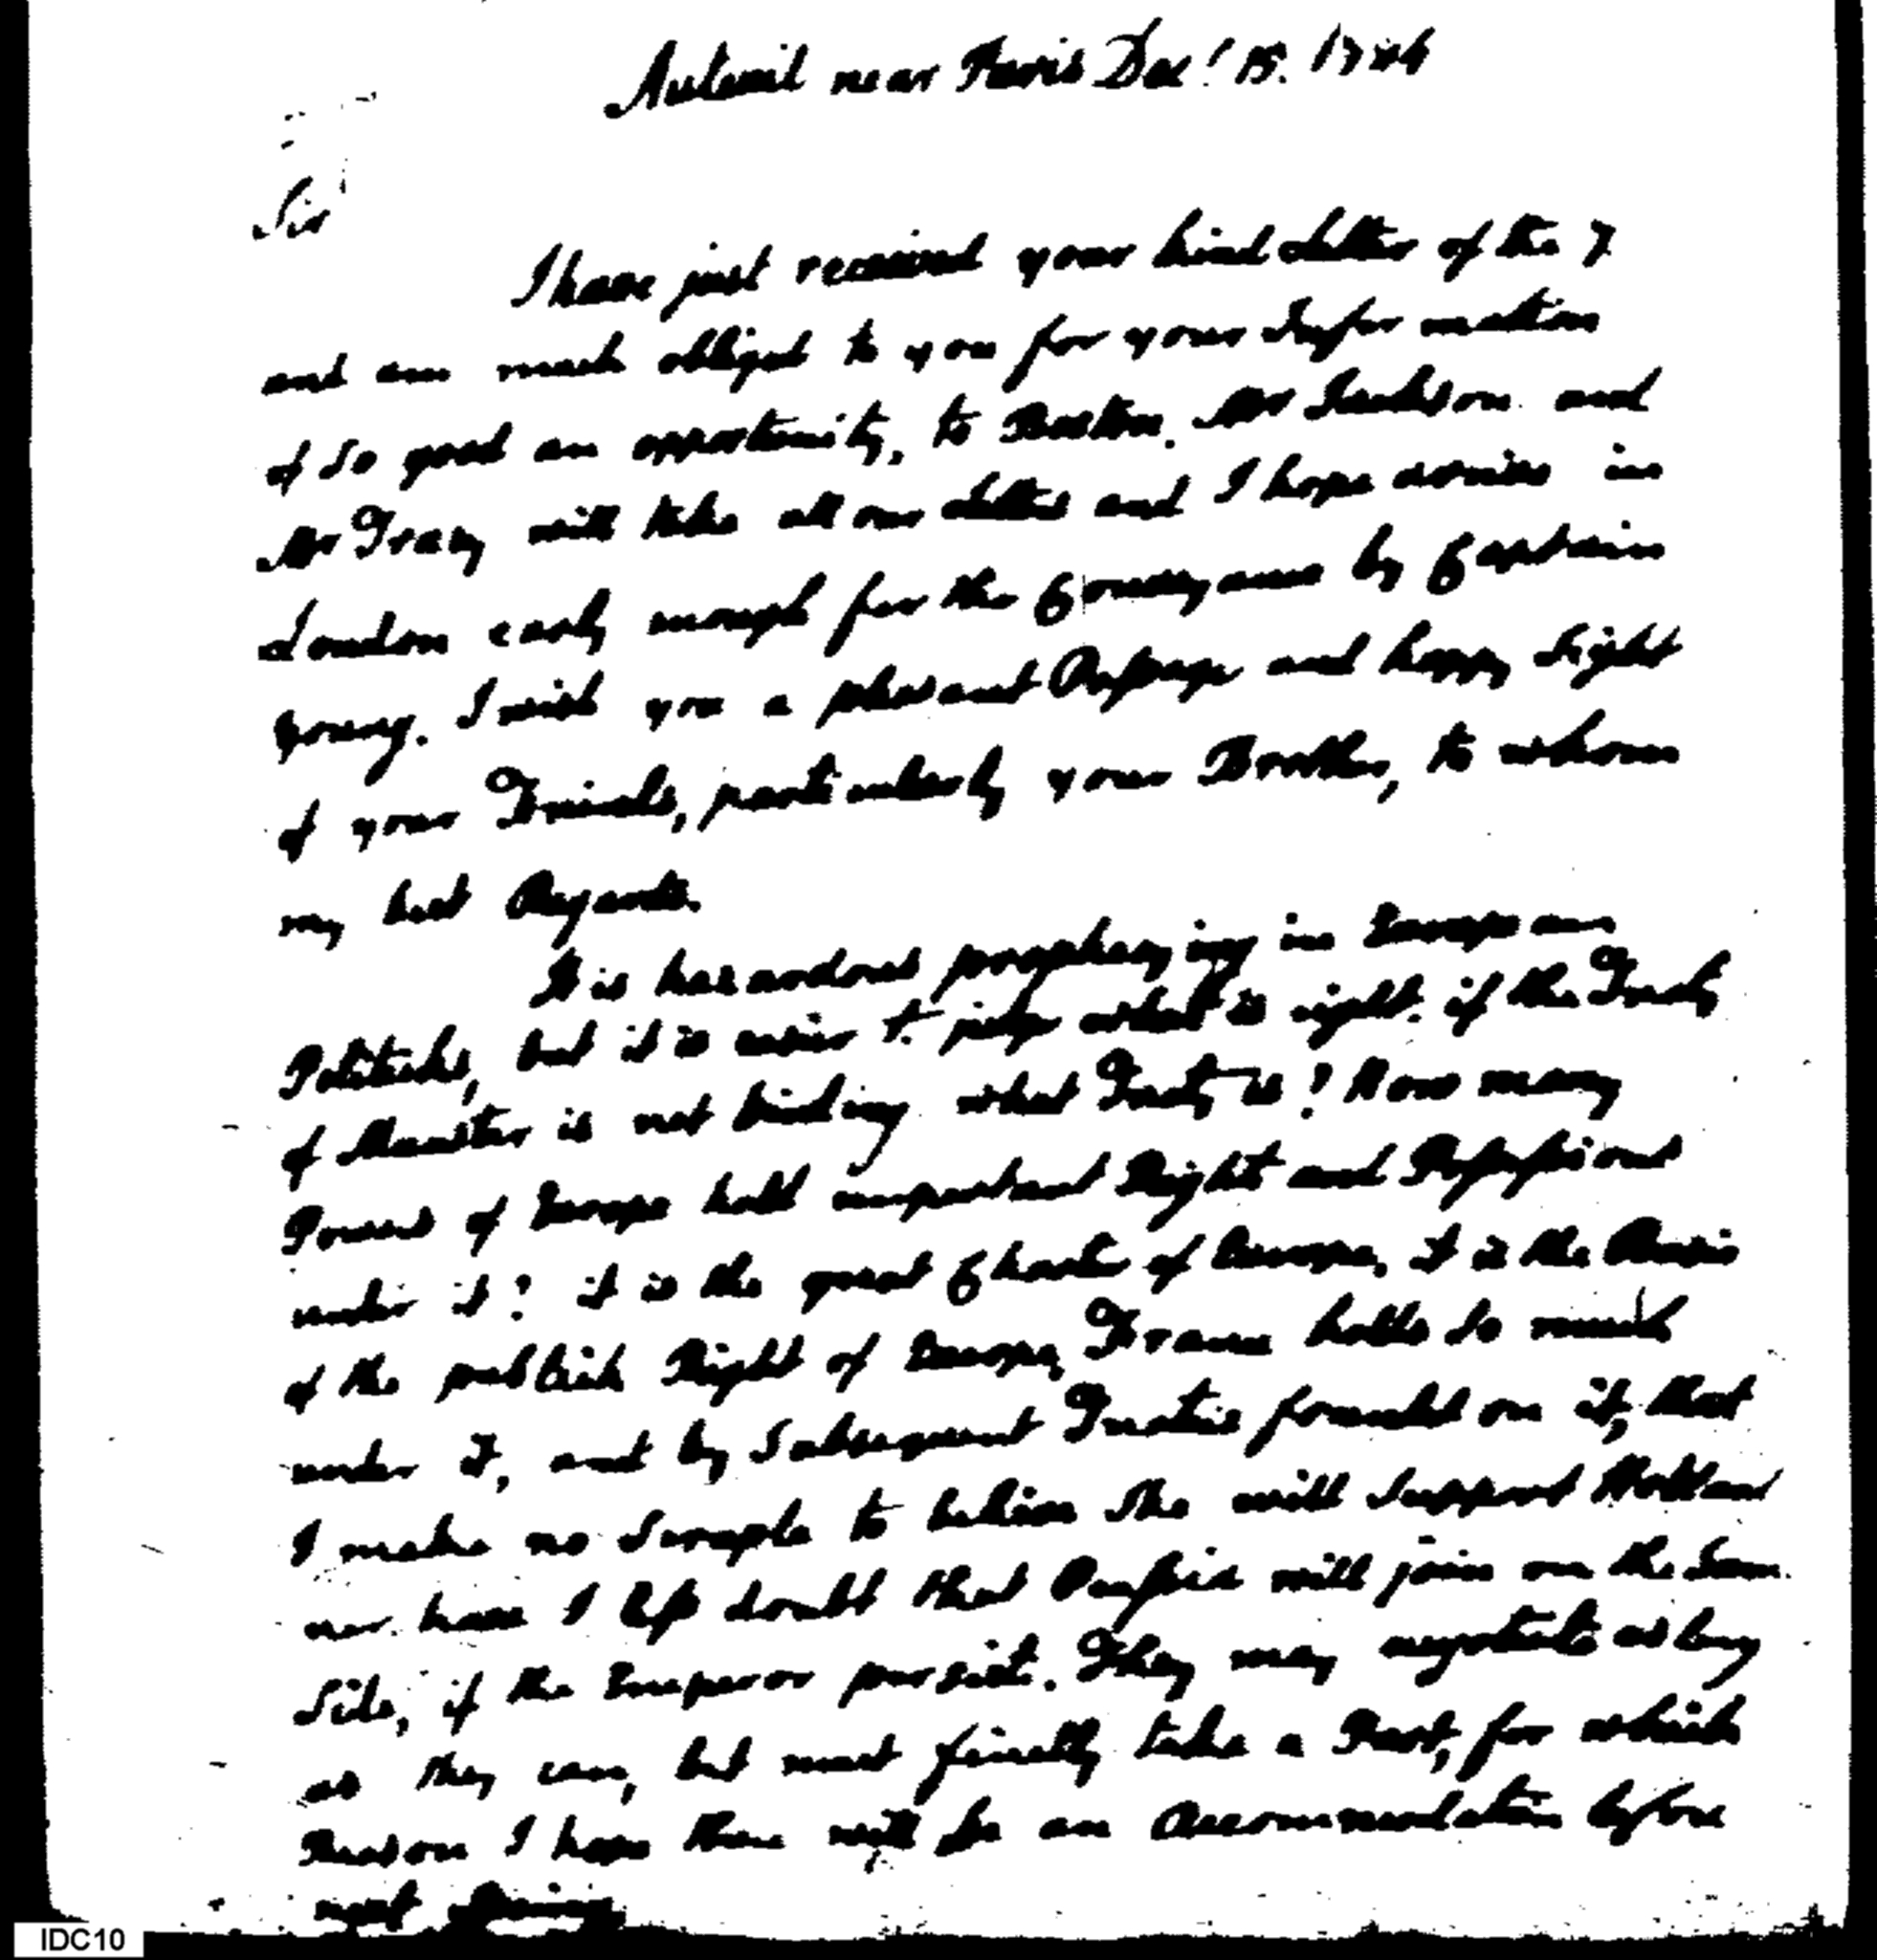 Auteuil near Paris Decr. 15. 1784
Sir
I have just received your kind Letter of the 7
and am much obliged to you for your Information
of so good an opportunity, to Boston. Mr Jackson and
Mr Tracy will take all our Letters and I hope arrive in
London early enough for the by Captain
Young. I wish you a pleasant Passage and happy Sight
of your Friends, particularly your Brother, to whom
my best Regards.
It is hazardous prophesying in European
Politicks, but it is easier to judge what is right. if the Treaty
of Munster is not binding what Treaty is? How many
Powers of Europe hold important Rights and Possessions
under it? it is the great Charter of Europe, it is the Basis
of the publick Right of Europe, France holds so much
under it, and by Subsequent Treaties founded on it, that
I make no Scruple to believe she will support Holland
nor have I less doubt that Prussia will join on the same
Side, if the Emperor persists. They may negotiate as long
as they can, but must finally take a Part, for which
Reason I hope there will be an Accommodation before
next Spring
IDC10